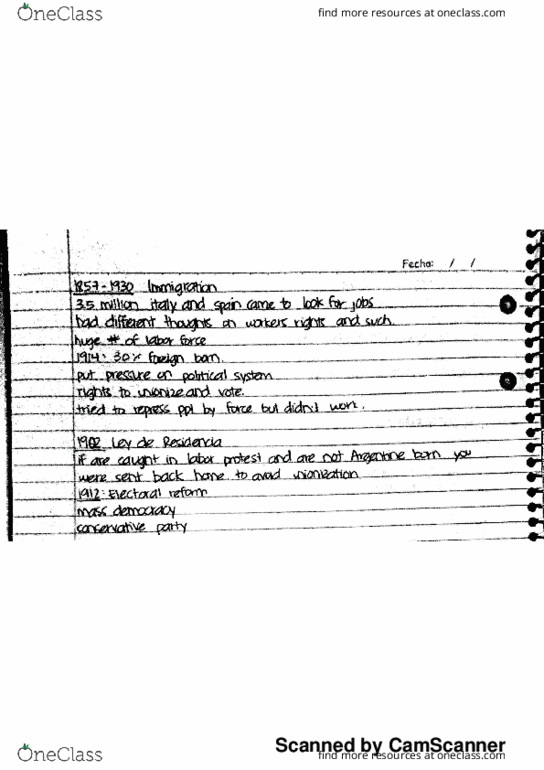 OneClass
find more resources at oneclass.com
Fecha: / /
1857-1930 Immigration
3.5 million italy and spain came to look for jobs
had different thoughts on workers rights and such.
huge # of labor force
1914: 30% foreign born.
put pressure on political system
rights to unionize and vote.
tried to repress ppl by force but didn't work.
1902 Ley de Residencia
if are caught in labor protest and are not Argentine born you
were sent back home to avoid unionization
1912: Electoral reform
mass democracy
conservative party
Scanned by CamScanner
OneClass
find more resources at oneclass.com